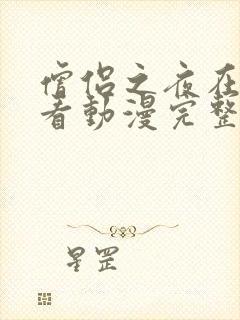 僧侣之夜在
看動漫完整
星罡